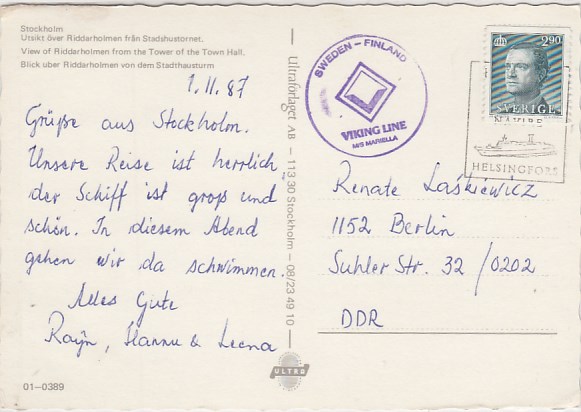 Stockholm
Utsikt över Riddarholmen från Stadshustornet.
View of Riddarholmen from the Tower of the Town Hall.
Blick uber Riddarholmen von dem Stadthausturm
1.11.87
Grüße aus Stockholm.
Unsere Reise ist herrlich
der Schiff ist groß und
schön. In diesem Abend
gehen wir da schwimmen.
Alles Gute
Hannu & Leena
01-0389
Ultraförlaget AB — 113 30 Stockholm — 08/23 49 10
ULTRA
SWEDEN - FINLAND
VIKING LINE
M/S MARIELLA
2.90
SVERIGE
HELSINGFORS
Renate Laśkiewicz
1152 Berlin
Suhler Str. 32 /0202
DDR